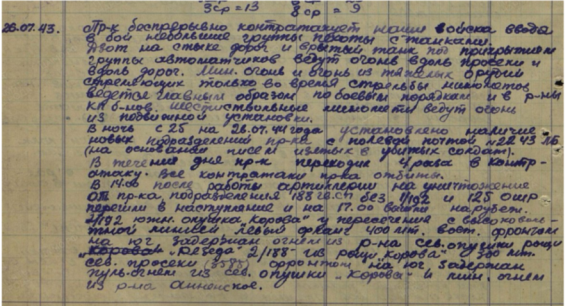 3ср = 13 8ср = 9
26.07.43. Пр-к беспрерывно контратакует наши войска вводя
в бой небольшие группы пехоты с танками.
Дзот на стыке дорог и врытый танк под прикрытием
группы автоматчиков ведут огонь вдоль просеки и
вдоль дорог. Мин. огонь и огонь из тяжелых орудий
стреляющих только во время стрельбы минометов
ведется главным образом по боевым порядкам и в р-ны
КП б-нов. Шестиствольные минометы ведут огонь
из подвижной установки.
В ночь с 25 на 26.07.44 года установлено наличие
новых подразделений пр-ка с полевой почтой
(на основании писем изъятых у убитых солдат).
В течение дня пр-к переходил 4 раза в контр-
атаку. Все контратаки пр-ка отбиты.
В 14.00 после работы артиллерии на уничтожение
ОТ пр-ка, подразделения 188 гв.сп без 1/192 и 125 ошр
перешли в наступление и на 17.00 вышли на рубеж:
2/192 южн. опушка „Корова" у пересечения с высоковоль-
тной линией левый фланг 400 мт. вост. фронтом
на юг задержан огнем из р-на сев. опушки рощи
„Резеда". 2/188 - рощи „Корова" 300 мт.
сев. просеки фронтом на юг задержан
пуль. огнем из сев. опушки „Корова" и мин. огнем
из р-на Анненское.